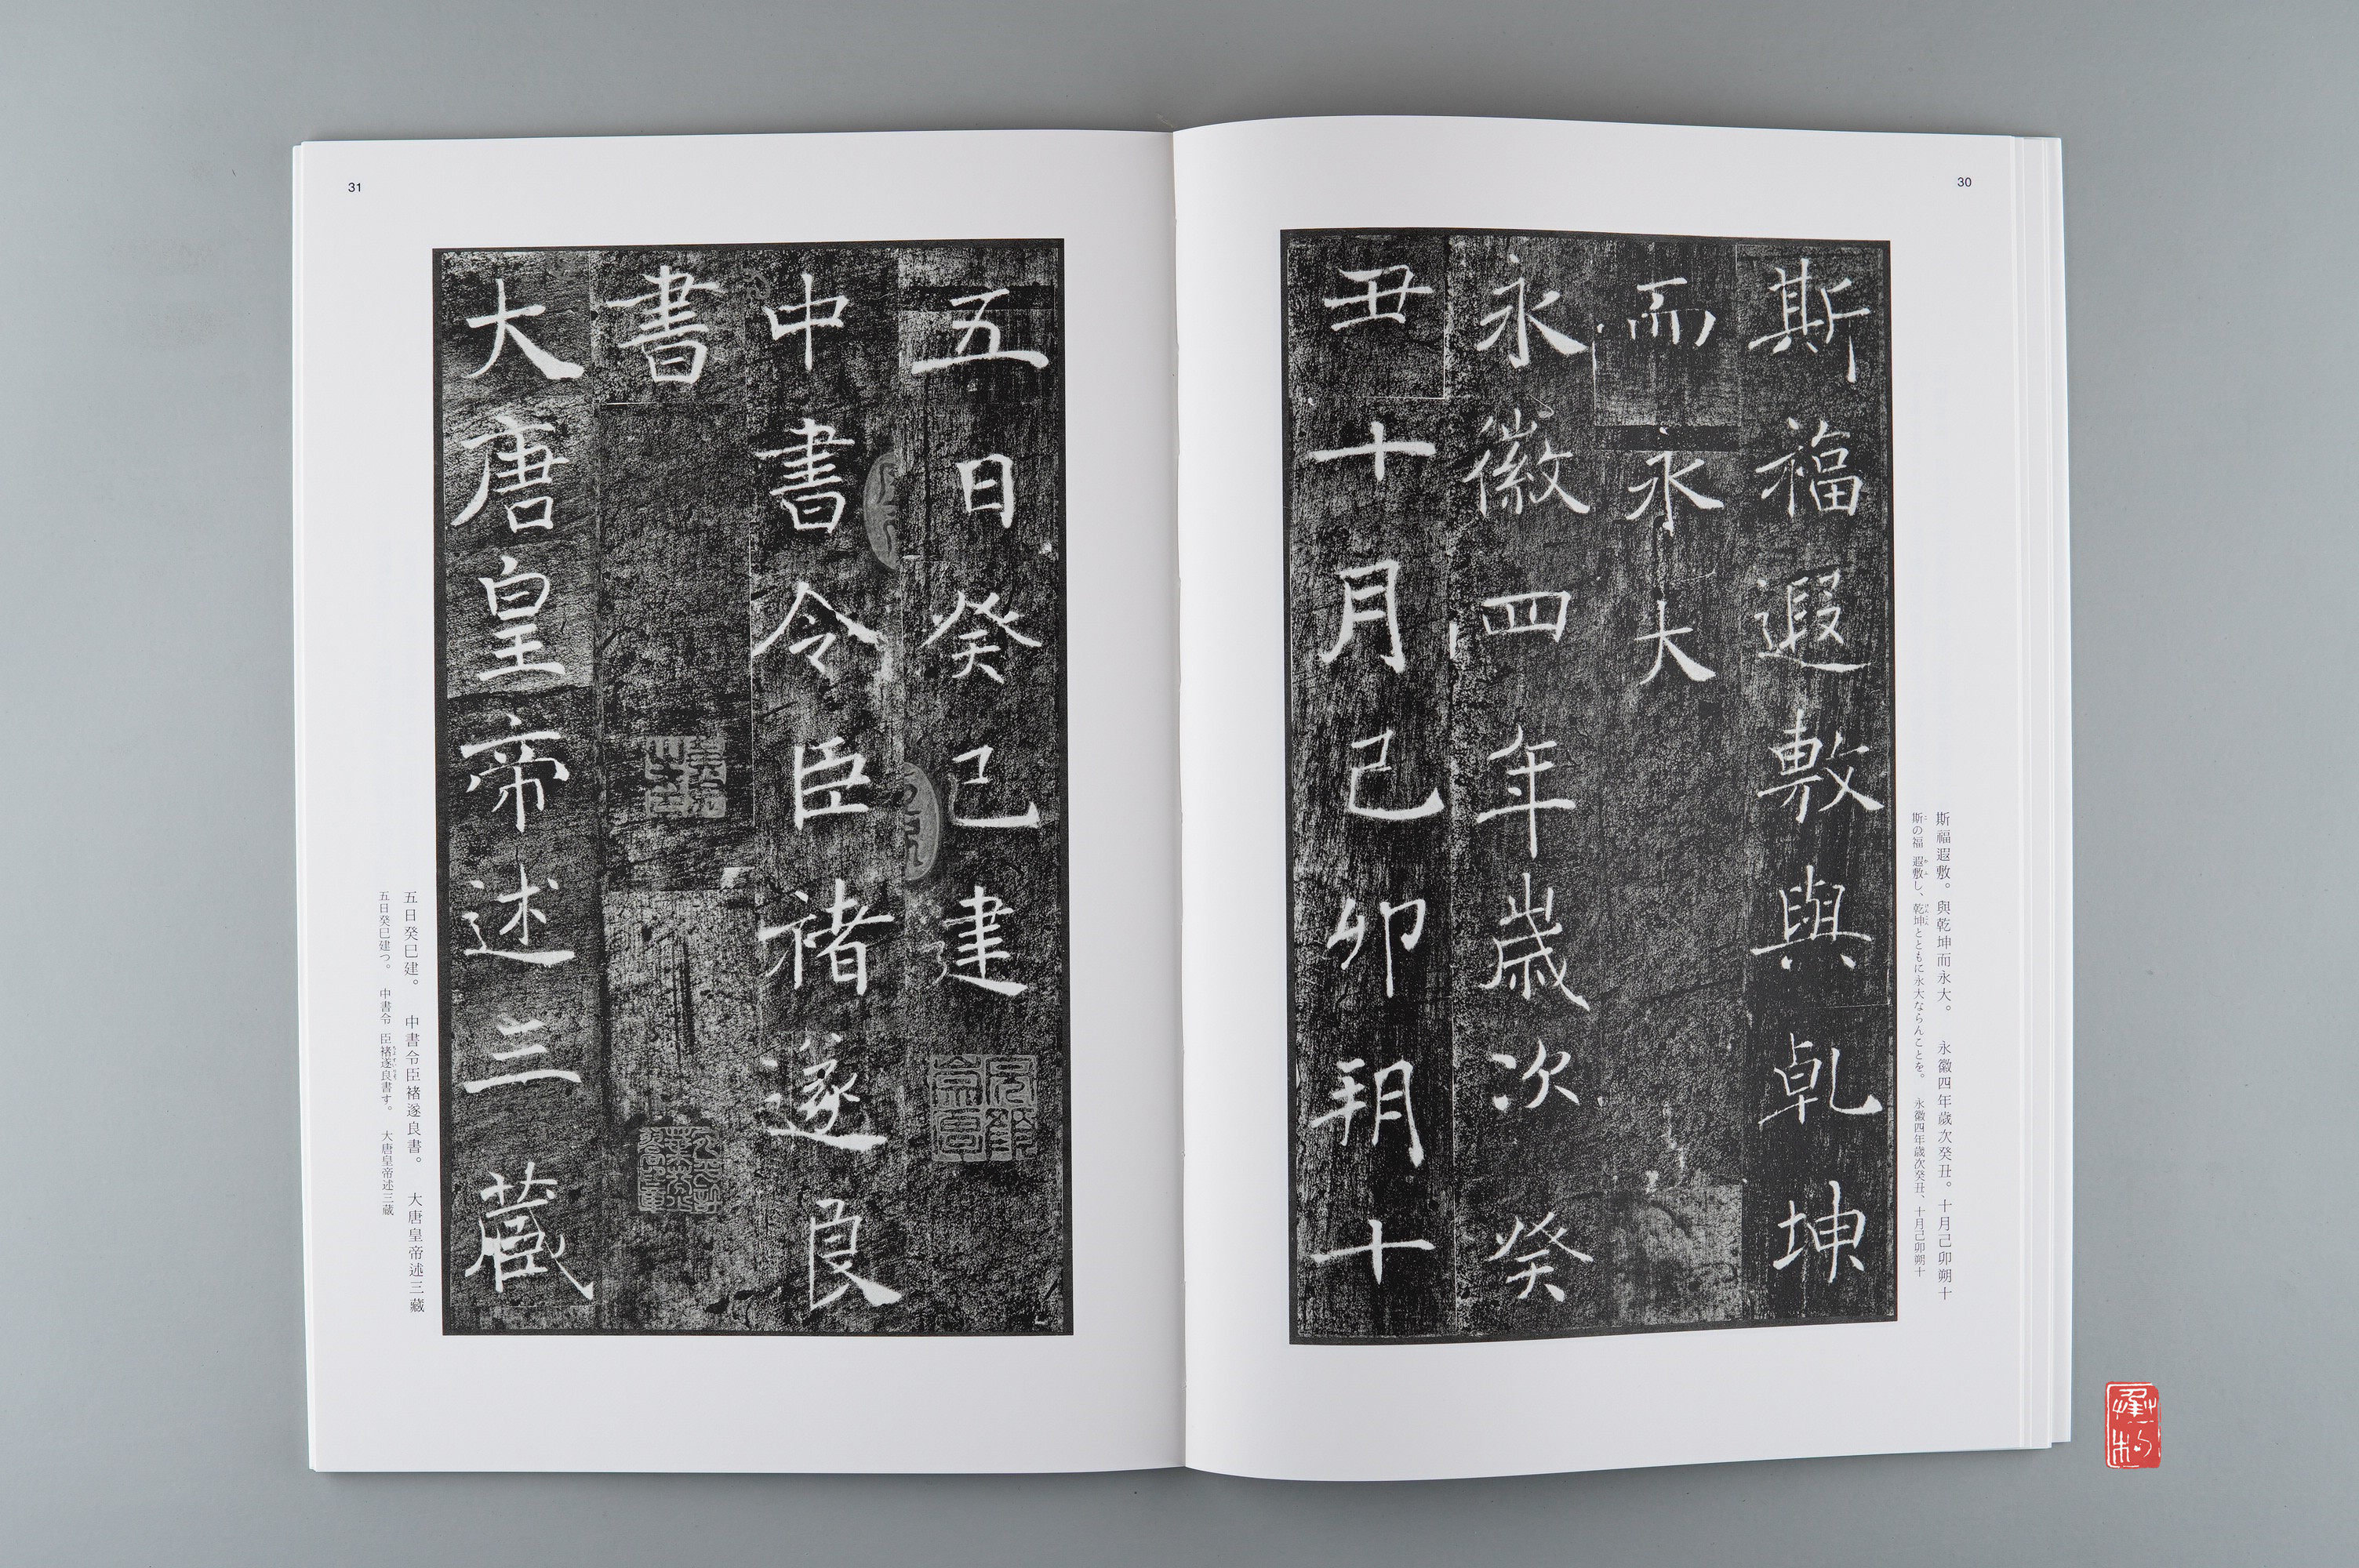 30
斯福遐敷與乹坤
而永大
永徽四年歲次癸
丑十月己卯朔十
斯福遐敷。與乾坤而永大。 永徽四年歲次癸丑。十月己卯朔十
斯の福 遐敷し、乾坤とともに永大ならんことを。 永徽四年歳次癸丑、十月己卯朔十
31
五日癸巳建
中書令臣褚遂良
書
大唐皇帝述三藏
五日癸巳建。 中書令臣褚遂良書。 大唐皇帝述三藏
五日癸巳建つ。 中書令 臣褚遂良書す。 大唐皇帝述三蔵